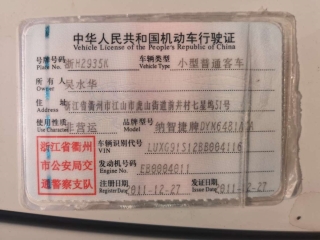 中华人民共和国机动车行驶证
Vehicle License of the People's Republic of China
号牌号码 浙H2935K 车辆类型 小型普通客车
Plate No. Vehicle Type
所有人 吴水华
Owner
住址 浙江省衢州市江山市虎山街道
Address
使用性质 非营运 品牌型号 纳智捷牌
Use Character Model
浙江省衢州
市公安局交
通警察支队
车辆识别代号
VIN
发动机号码
Engine No.
注册日期 2011-12-27 发证日期 2011-12-27
Register Date Issue Date